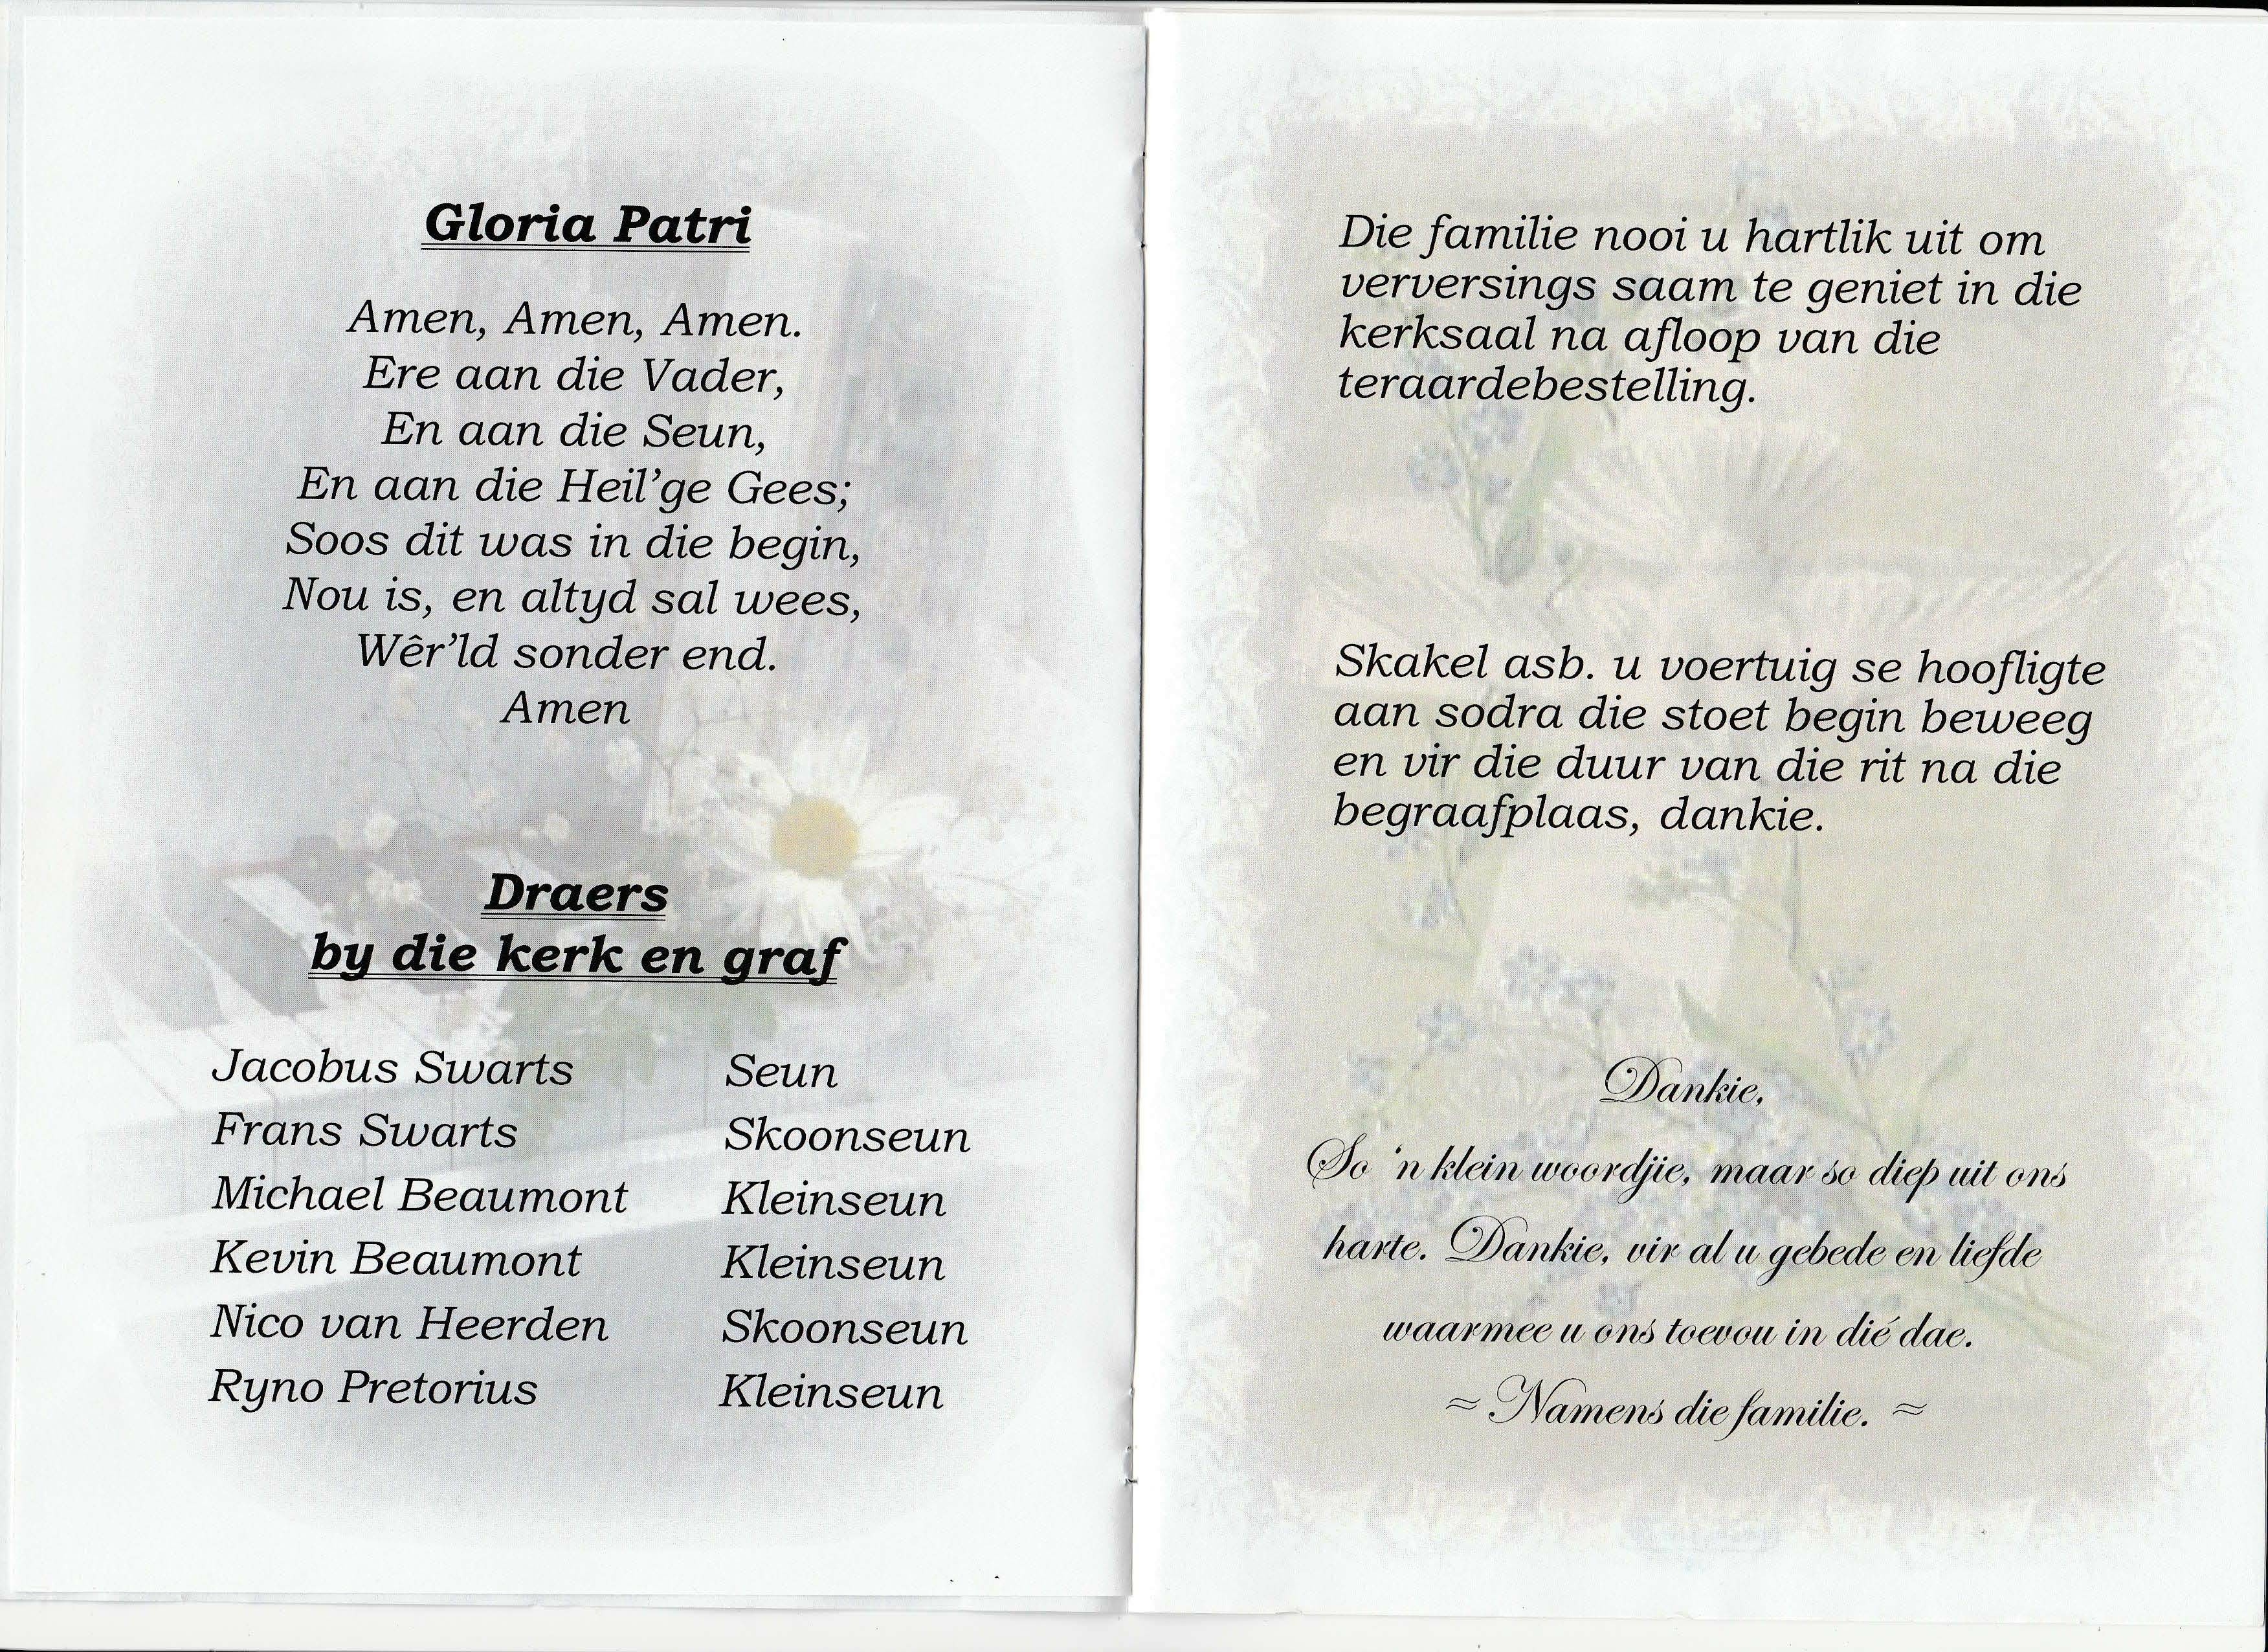 Gloria Patri
Amen, Amen, Amen.
Ere aan die Vader,
En aan die Seun,
En aan die Heil’ge Gees;
Soos dit was in die begin,
Nou is, en altyd sal wees,
Wêr’ld sonder end.
Amen
Draers
by die kerk en graf
Jacobus Swarts Seun
Frans Swarts Skoonseun
Michael Beaumont Kleinseun
Kevin Beaumont Kleinseun
Nico van Heerden Skoonseun
Ryno Pretorius Kleinseun
Die familie nooi u hartlik uit om
verversings saam te geniet in die
kerksaal na afloop van die
teraardebestelling.
Skakel asb. u voertuig se hoofligte
aan sodra die stoet begin beweeg
en vir die duur van die rit na die
begraafplaas, dankie.
Dankie,
So ‘n klein woordjie, maar so diep uit ons
harte. Dankie, vir al u gebede en liefde
waarmee u ons toevou in dié dae.
≈ Namens die familie. ≈